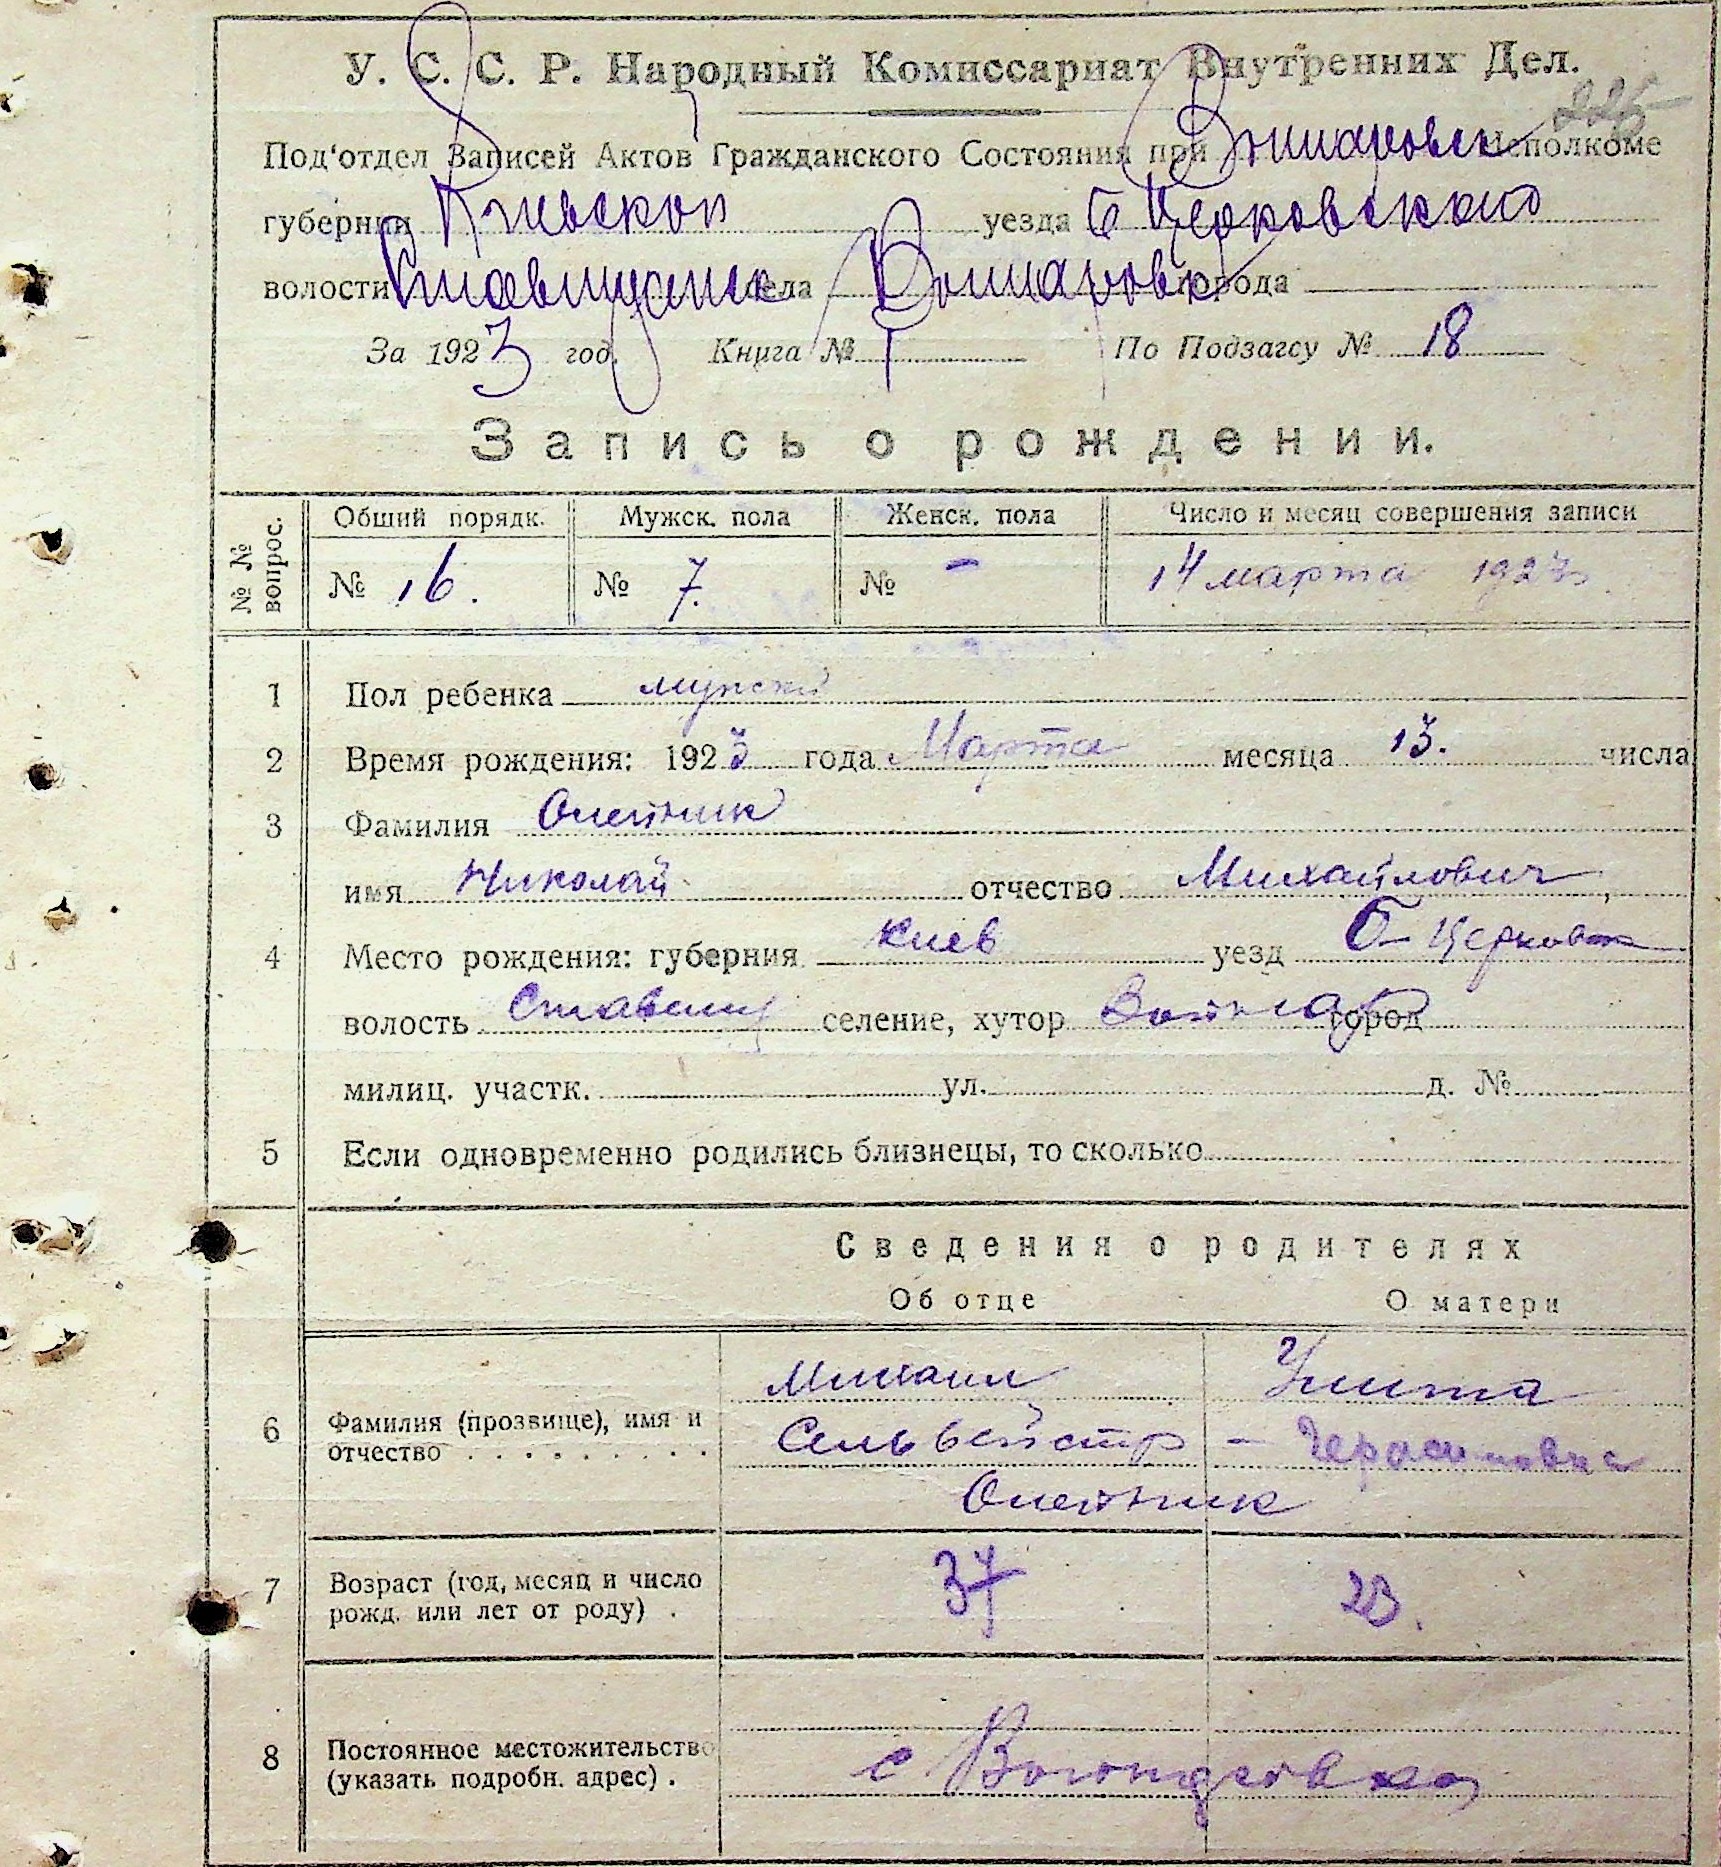 У. С. С. Р. Народный Комиссариат Внутренних Дел.
225
Под‘отдел Записей Актов Гражданского Состояния при Исполкоме
губернии Киевской уезда Б Церковского
волости Ставищанск села города
За 1923 год. Книга № I По Подзагсу № 18
Запись о рождении.
№ № вопрос. Общий порядк. Мужск. пола Женск. пола Число и месяц совершения записи
№ 16. № 7. № – 14 марта 1923
1 Пол ребенка мужской
2 Время рождения: 1923 года Марта месяца 13. числа
3 Фамилия Олейник
имя Николай отчество Михайлович,
4 Место рождения: губерния Киев уезд Б-Церковск
волость Ставищ селение, хутор город
милиц. участк. ул. д. №
5 Если одновременно родились близнецы, то сколько
Сведения о родителях
Об отце О матери
6 Фамилия (прозвище), имя и отчество . . . . . . . . .
Михаил Улита
Сельвейстр – Герасимовна
Олейник
7 Возраст (год, месяц и число рожд. или лет от роду) . 37 23.
8 Постоянное местожительство (указать подробн. адрес) . с